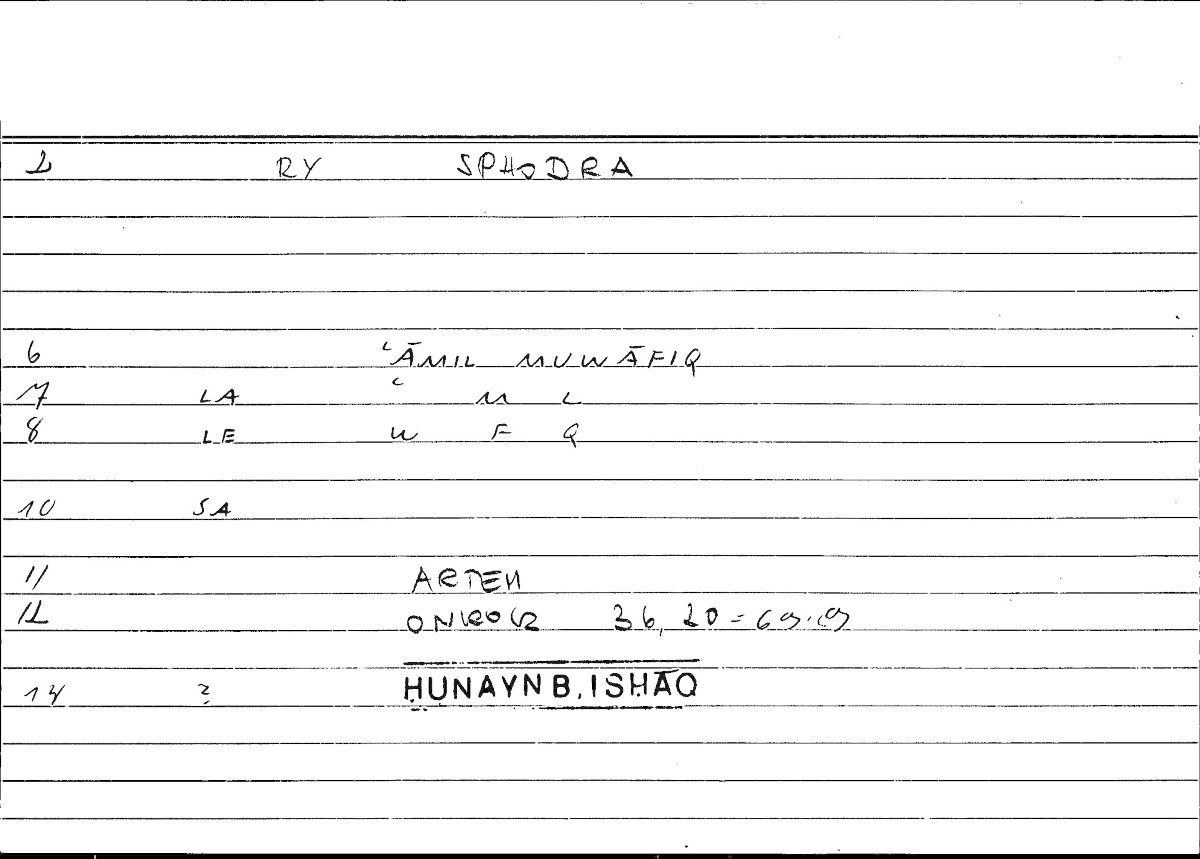 2 RY SPHODRA
6 ʿĀMIL MUWĀFIQ
7 LA ʿ M L
8 LE W F Q
10 SA
11 ARTEM
12 ONIROCR 36, 20 = 69.9
14 ? ḤUNAYN B. ISḤĀQ